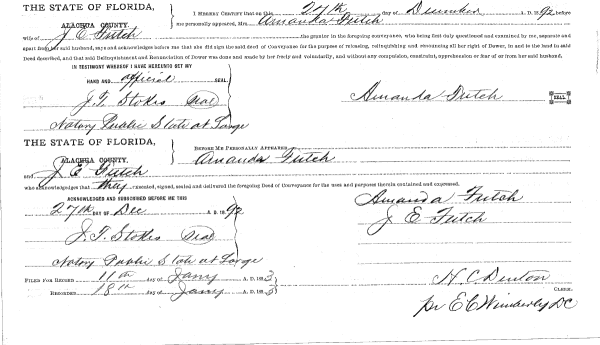 THE STATE OF FLORIDA,
ALACHUA COUNTY.
I HEREBY CERTIFY that on this 27th day of December 1892, before
me personally appeared, Mrs. Amanda Futch
wife of J E Futch the grantor in the foregoing conveyance, who being first duly questioned and examined by me, separate and
apart from her said husband, says and acknowledges before me that she did sign the said deed of Conveyance for the purpose of releasing, relinquishing and renouncing all her right of Dower, in and to the land in said
Deed described, and that said Relinquishment and Renunciation of Dower was done and made by her freely and voluntarily, and without any compulsion, constraint, apprehension or fear of or from her said husband.
IN TESTIMONY WHEREOF I HAVE HEREUNTO SET MY
HAND AND official SEAL
J. T. Stokes Seal
Notary Public State at Large
Amanda Futch SEAL
THE STATE OF FLORIDA,
ALACHUA COUNTY.
BEFORE ME PERSONALLY APPEARED Amanda Futch
and J E Futch
who acknowledges that they executed, signed, sealed and delivered the foregoing Deed of Conveyance for the uses and purposes therein contained and expressed.
ACKNOWLEDGED AND SUBSCRIBED BEFORE ME THIS
27th DAY OF Dec A. D. 1892
J. T. Stokes Seal
Notary Public State at Large
Amanda Futch
J E Futch
FILED FOR RECORD 11th day of Jany A. D. 1893
RECORDED 18th day of Jany A. D. 1893
H. C. Denton
CLERK.
Pr E C Wimberly DC